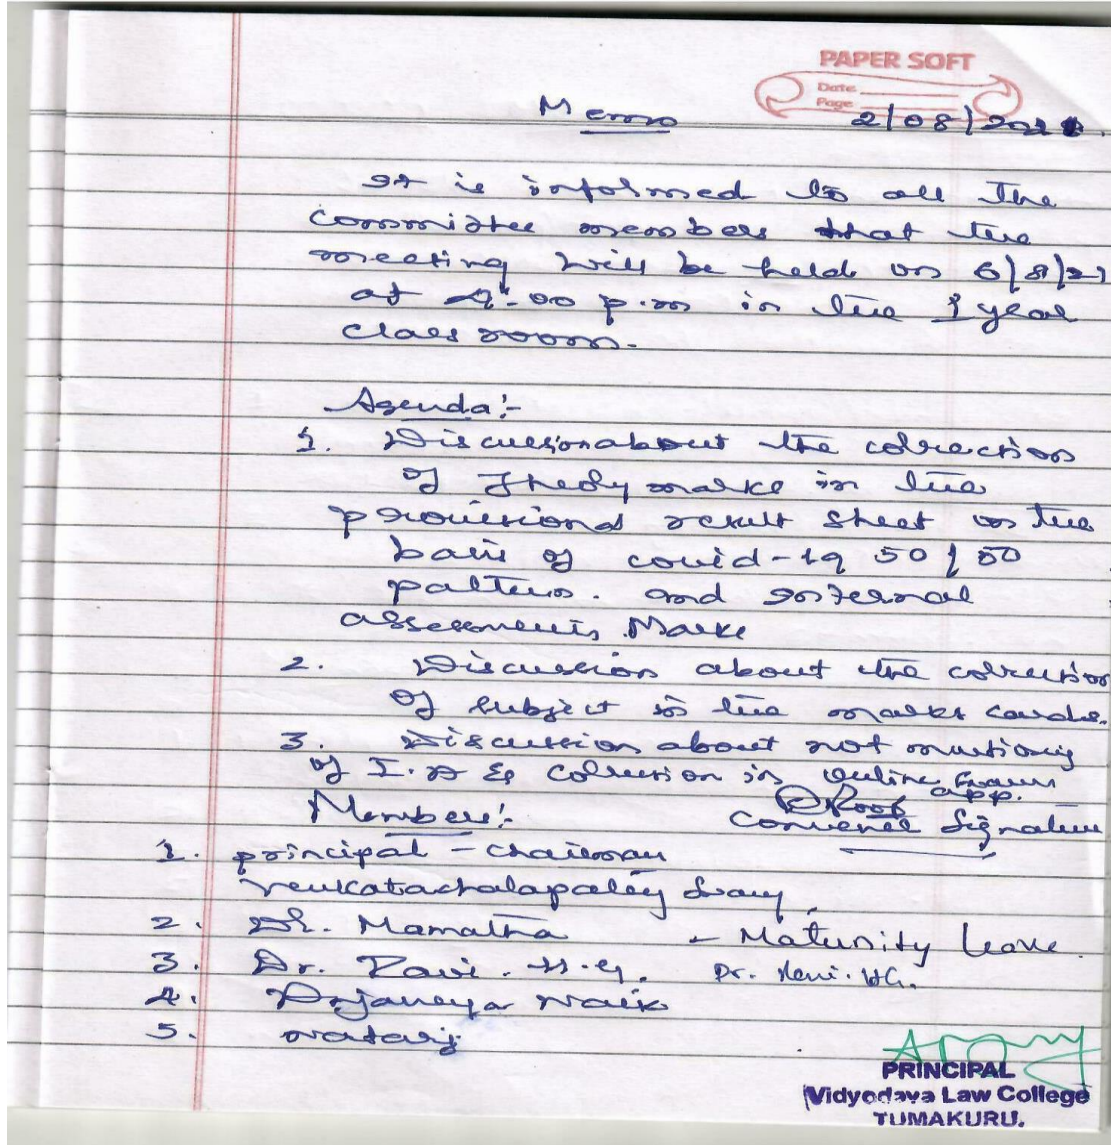 PAPER SOFT
Date
Page
Memo 2/08/2021
It is informed to all the
committee members that the
meeting will be held on 6/8/21
at 4:00 p.m in the I year
class room.
Agenda:-
1. Discussion about the correction
of Theory marks in the
provisional result sheet on the
basis of covid-19 50/50
pattern. and Internal
assessments Marks
2. Discussion about the correction
of subject in the marks cards.
3. Discussion about not mentioning
of I.A & correction in online exam
app.
Members:- Convener Signature
1. principal - chairman
Venkatachalapathy Swamy
2. Dr. Mamatha - Maturnity leave
3. Dr. Ravi. H.G. Dr. Ravi. HG.
4. Naik
5. Nataraj
PRINCIPAL
Vidyodaya Law College
TUMAKURU.